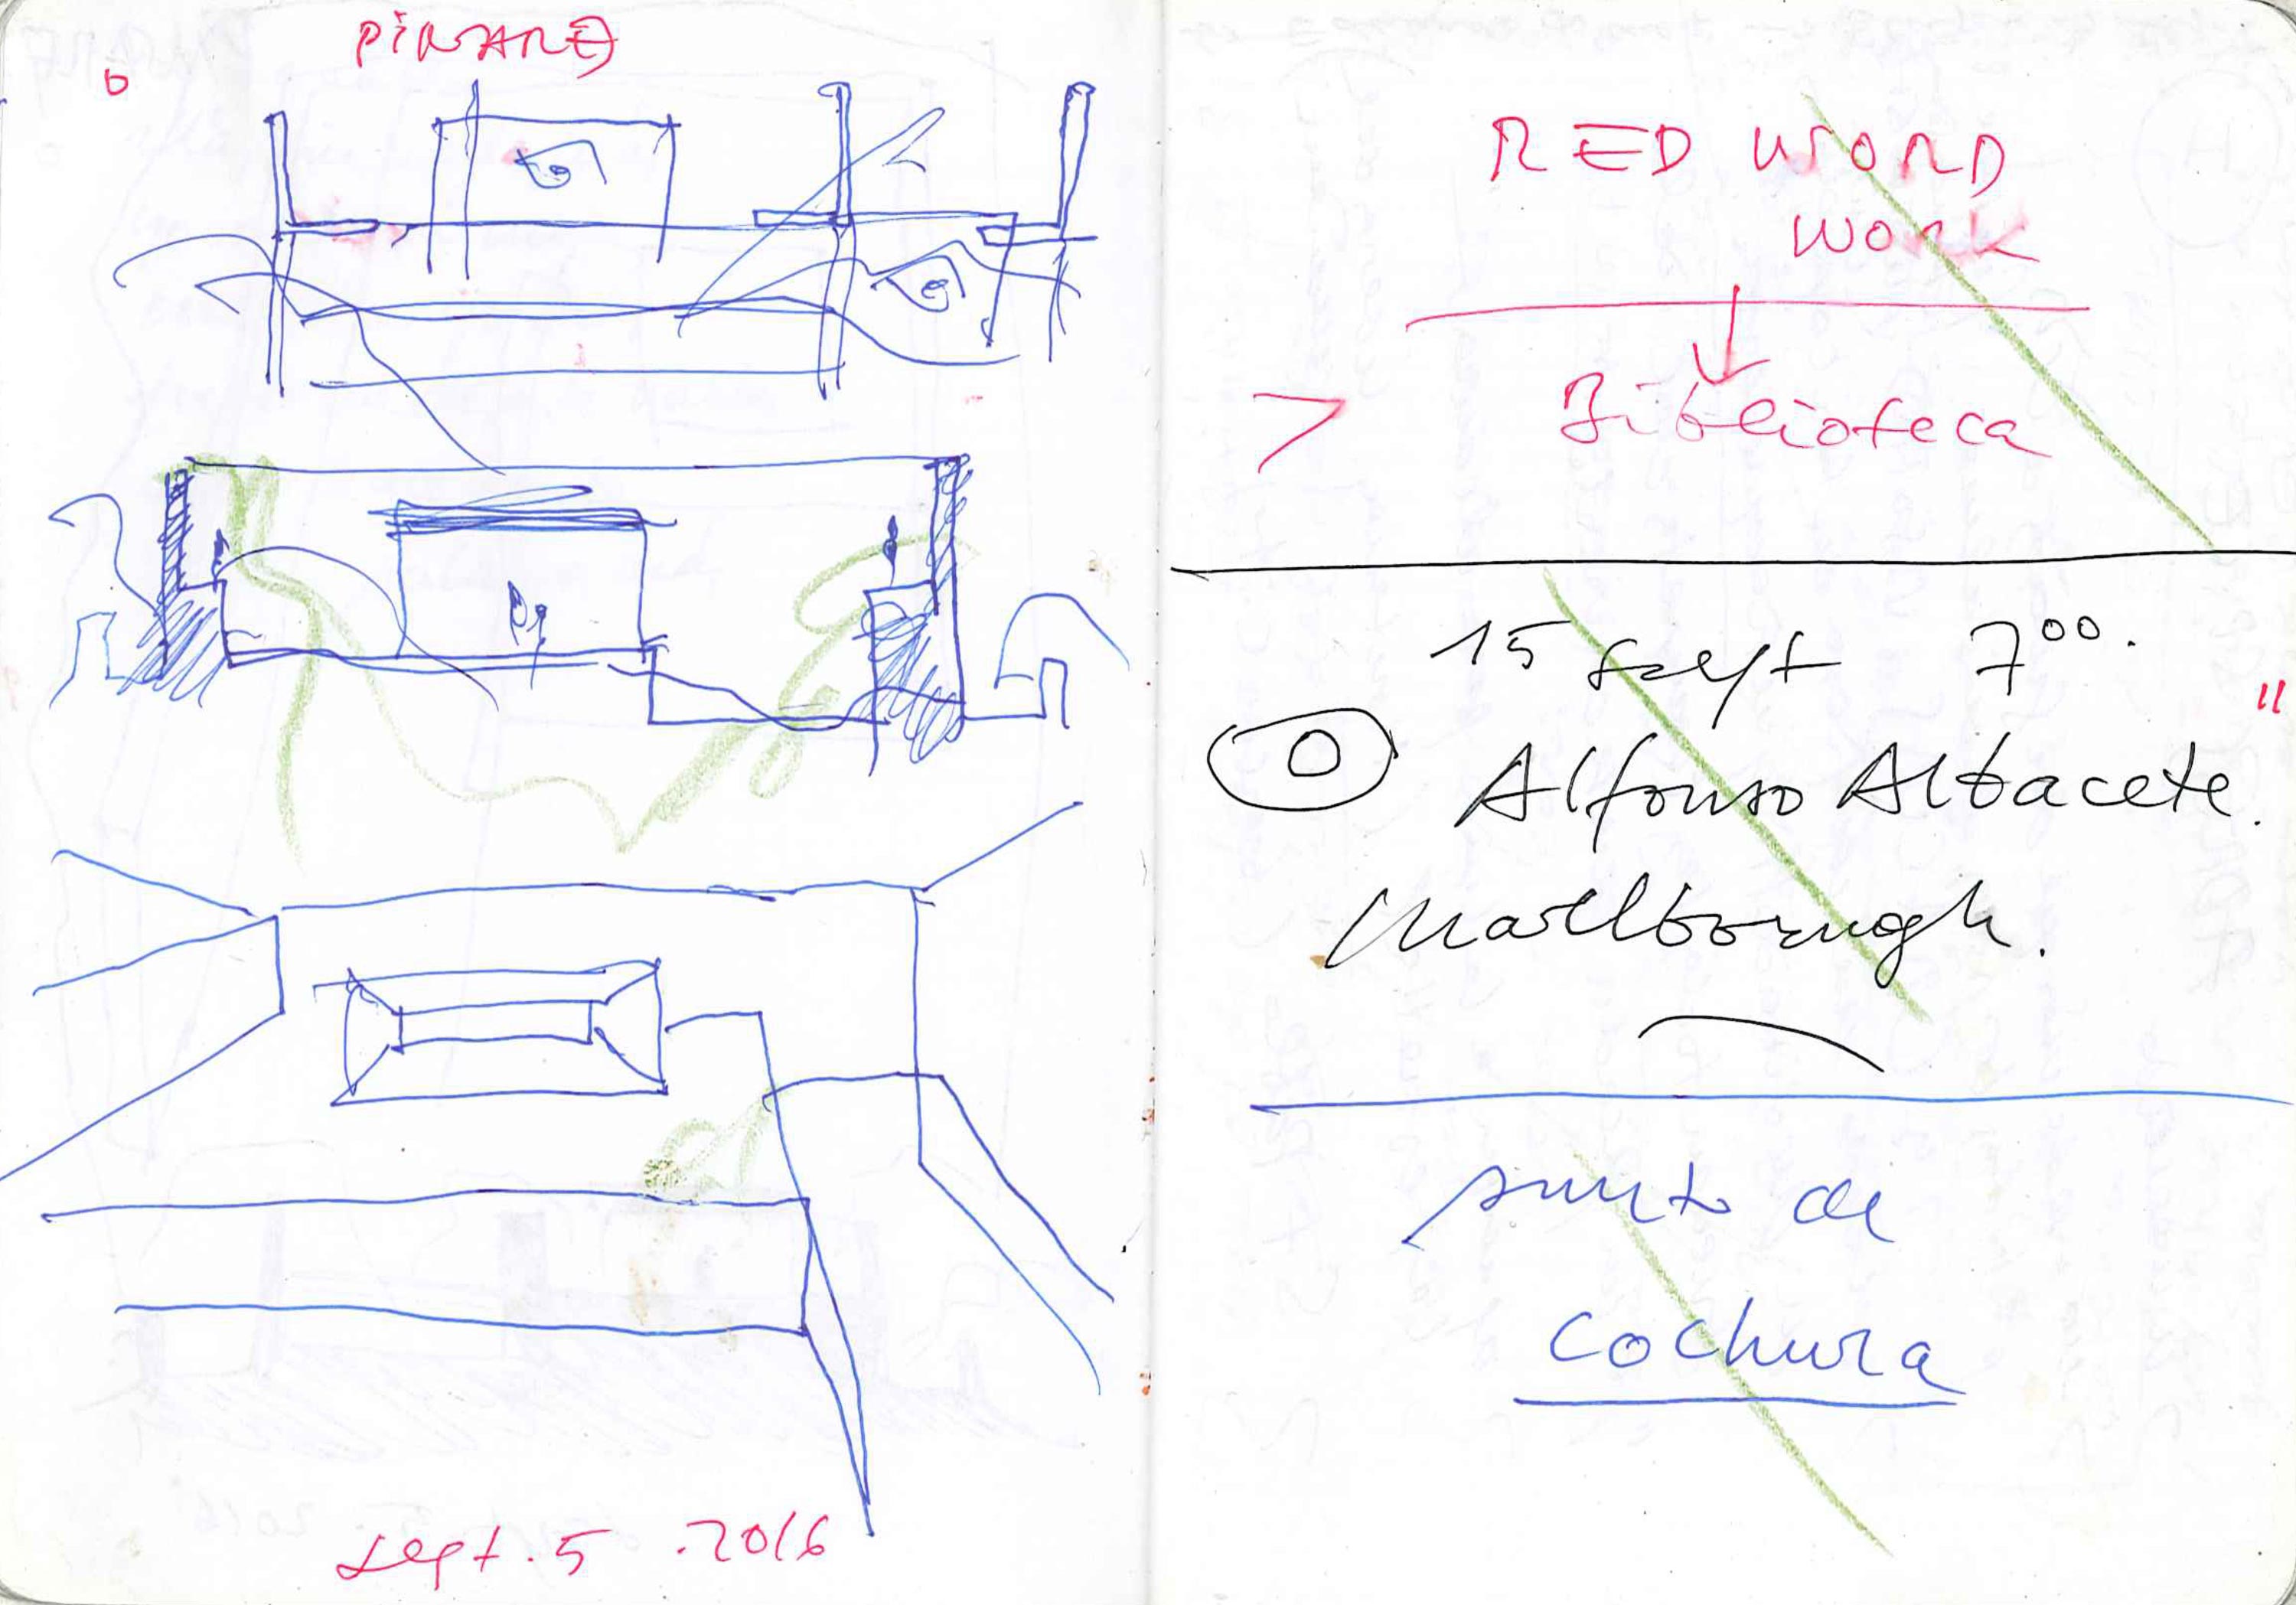 RED WORD
WORK
Biblioteca
15 sept 7⁰⁰.
Alfonso Albacete.
Marlborough.
punto de
cochura
sept. 5 . 2016